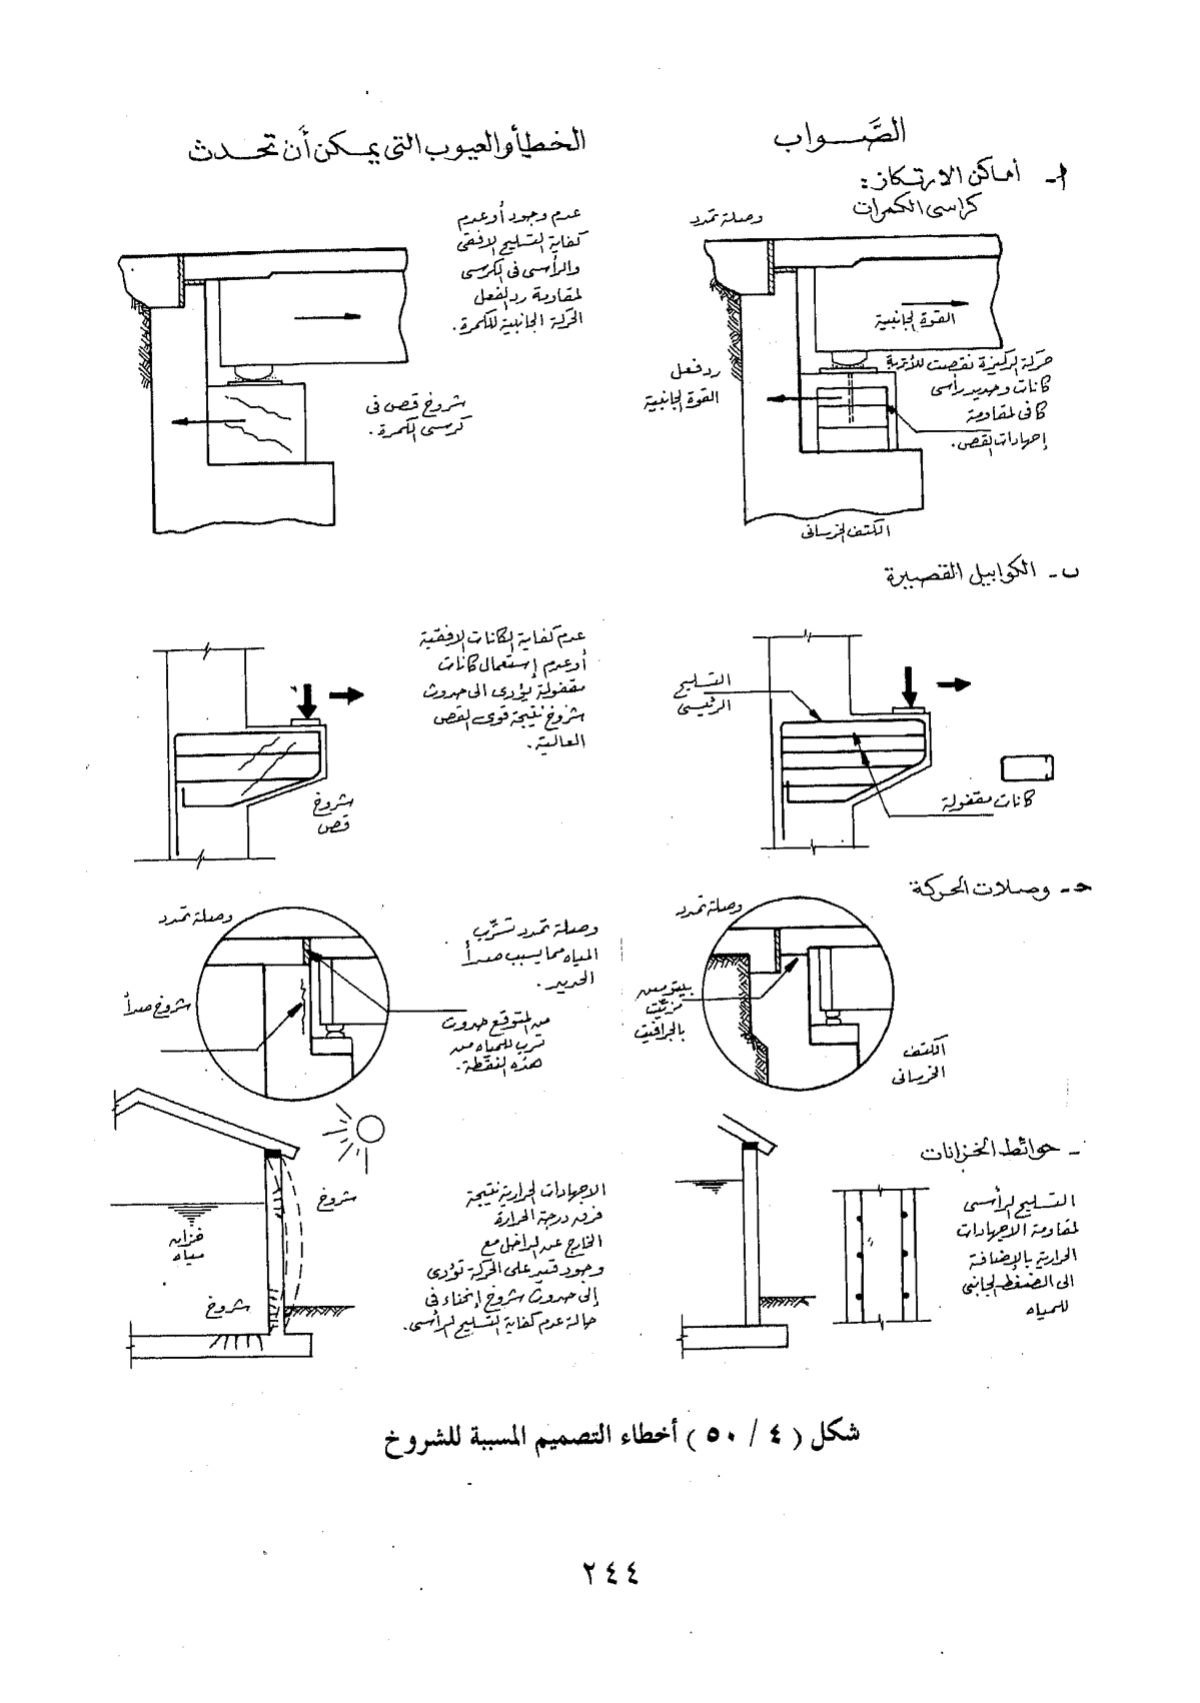 الصَّواب
الخطأ والعيوب التى يمكن أن تحدث
أ - أماكن الارتكاز:
كراسى الكمرات
وصلة تمدد
القوة الجانبية
رد فعل
القوة الجانبية
حركة الركيزة نقصت للأتربة
كانات وحديد رأسى
كافى لمقاومة
إجهادات القص.
الكتف الخرسانى
عدم وجود أو عدم
كفاية التسليح الافقى
والرأسى فى الكرسى
لمقاومة رد الفعل
الحركة الجانبية للكمرة.
شروخ قص فى
كرسى الكمرة.
ب - الكوابيل القصيرة
التسليح
الرئيسى
كانات مقفولة
عدم كفاية الكانات الافقية
أو عدم إستعمال كانات
مقفولة يؤدى الى حدوث
شروخ نتيجة قوى القص
العالية.
شروخ
قص
حـ - وصلات الحركة
وصلة تمدد
بيتومين
بالجرافيت
الكتف
الخرسانى
وصلة تمدد تسرّب
المياه مما يسبب صدأ
الحديد.
من المتوقع حدوث
تسرب للمياه من
هذه النقطة.
وصلة تمدد
شروخ صدأ
- حوائط الخزانات
التسليح الرأسى
لمقاومة الاجهادات
الحرارية بالإضافة
الى الضغط الجانبى
للمياه
الاجهادات الحرارية نتيجة
فرق درجة الحرارة
الخارج عن الداخل مع
وجود قيد على الحركة تؤدى
إلى حدوث شروخ إنحناء فى
حالة عدم كفاية التسليح الرأسى.
شروخ
خزان
مياه
شروخ
شكل ( ٤ / ٥٠ ) أخطاء التصميم المسببة للشروخ
٢٤٤